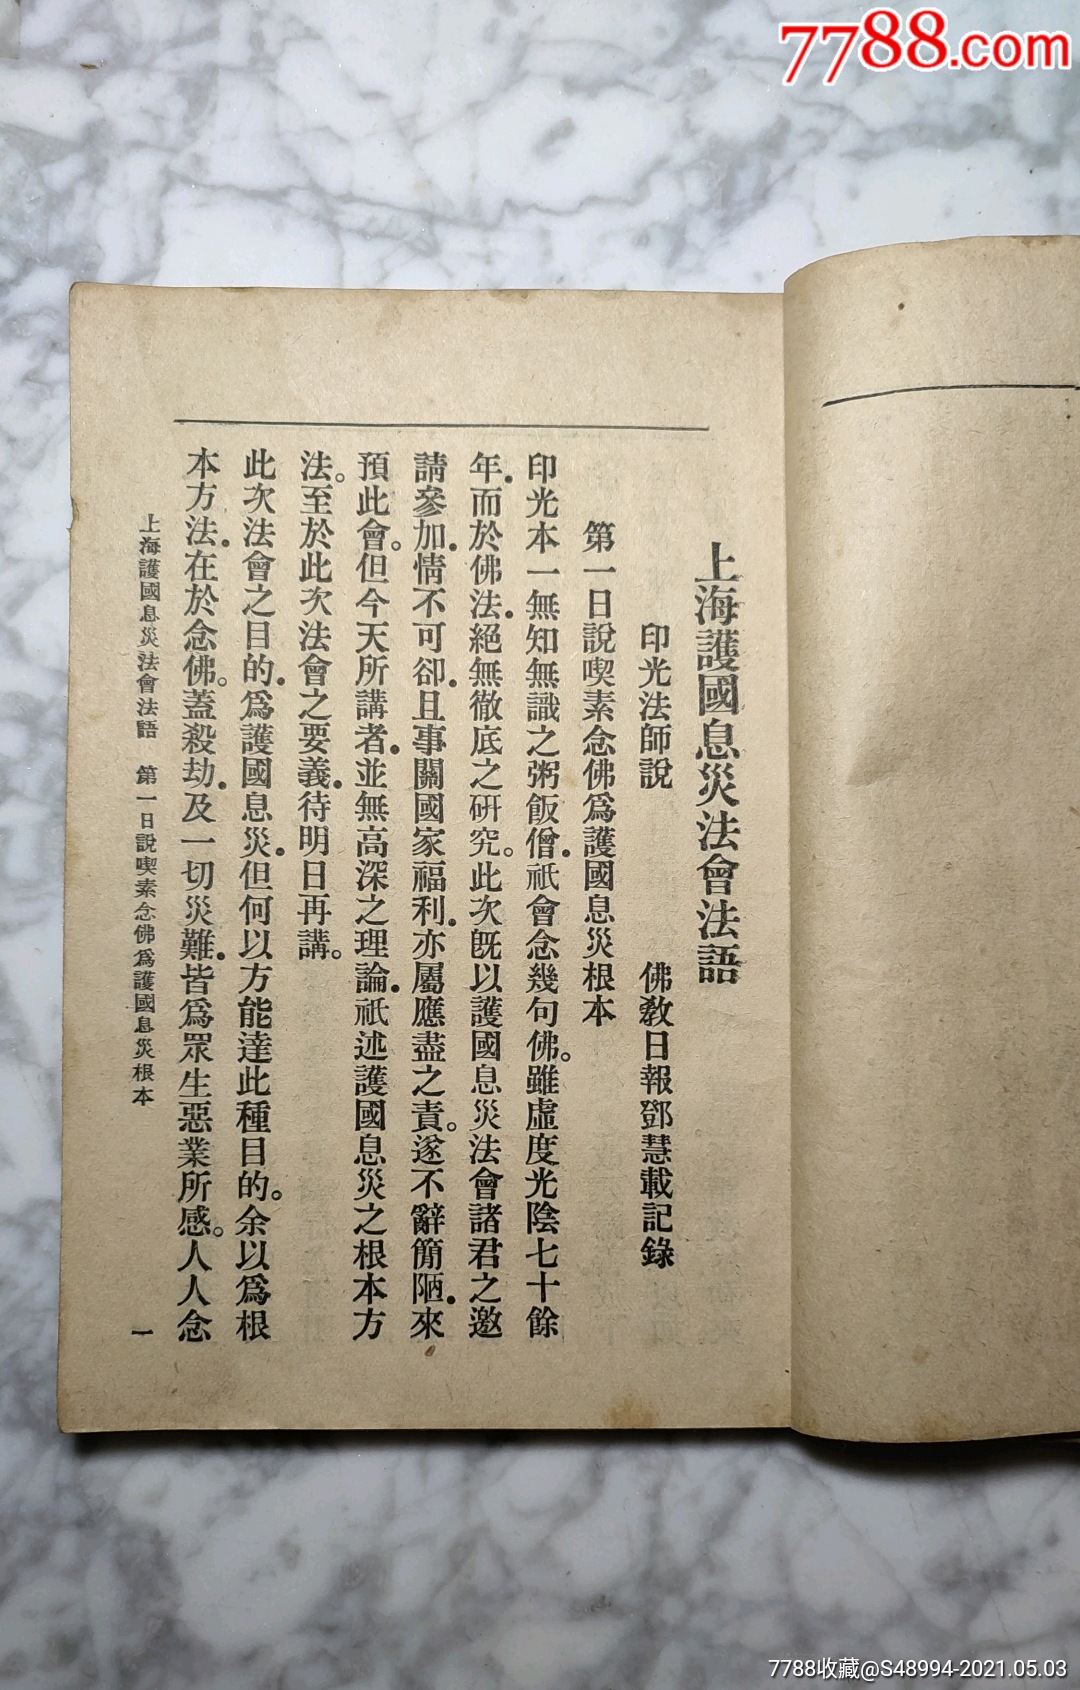 7788.com
上海護國息災法會法語
印光法師說　佛敎日報鄧慧載記錄
第一日說喫素念佛爲護國息災根本
印光本一無知無識之粥飯僧．祇會念幾句佛。雖虛度光陰七十餘
年．而於佛法．絕無徹底之研究。此次旣以護國息災法會諸君之邀
請參加．情不可卻．且事關國家福利．亦屬應盡之責。遂不辭簡陋．來
預此會。但今天所講者．並無高深之理論．祇述護國息災之根本方
法。至於此次法會之要義．待明日再講。
此次法會之目的．爲護國息災．但何以方能達此種目的。余以爲根
本方法．在於念佛。蓋殺劫．及一切災難．皆爲眾生惡業所感。人人念
上海護國息災法會法語　第一日說喫素念佛爲護國息災根本　一
7788收藏@S48994-2021.05.03